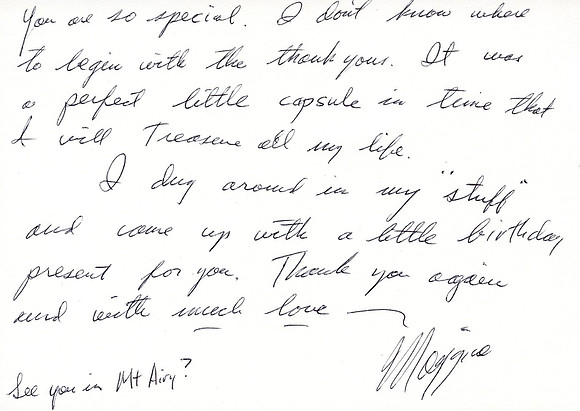 You are so special. I don't know where
to begin with the thank yous. It was
a perfect little capsule in time that
I will Treasure all my life.
I dug around in my "stuff"
and come up with a little birthday
present for you. Thank you again
and with much love —
Maggie
See you in Mt Airy?